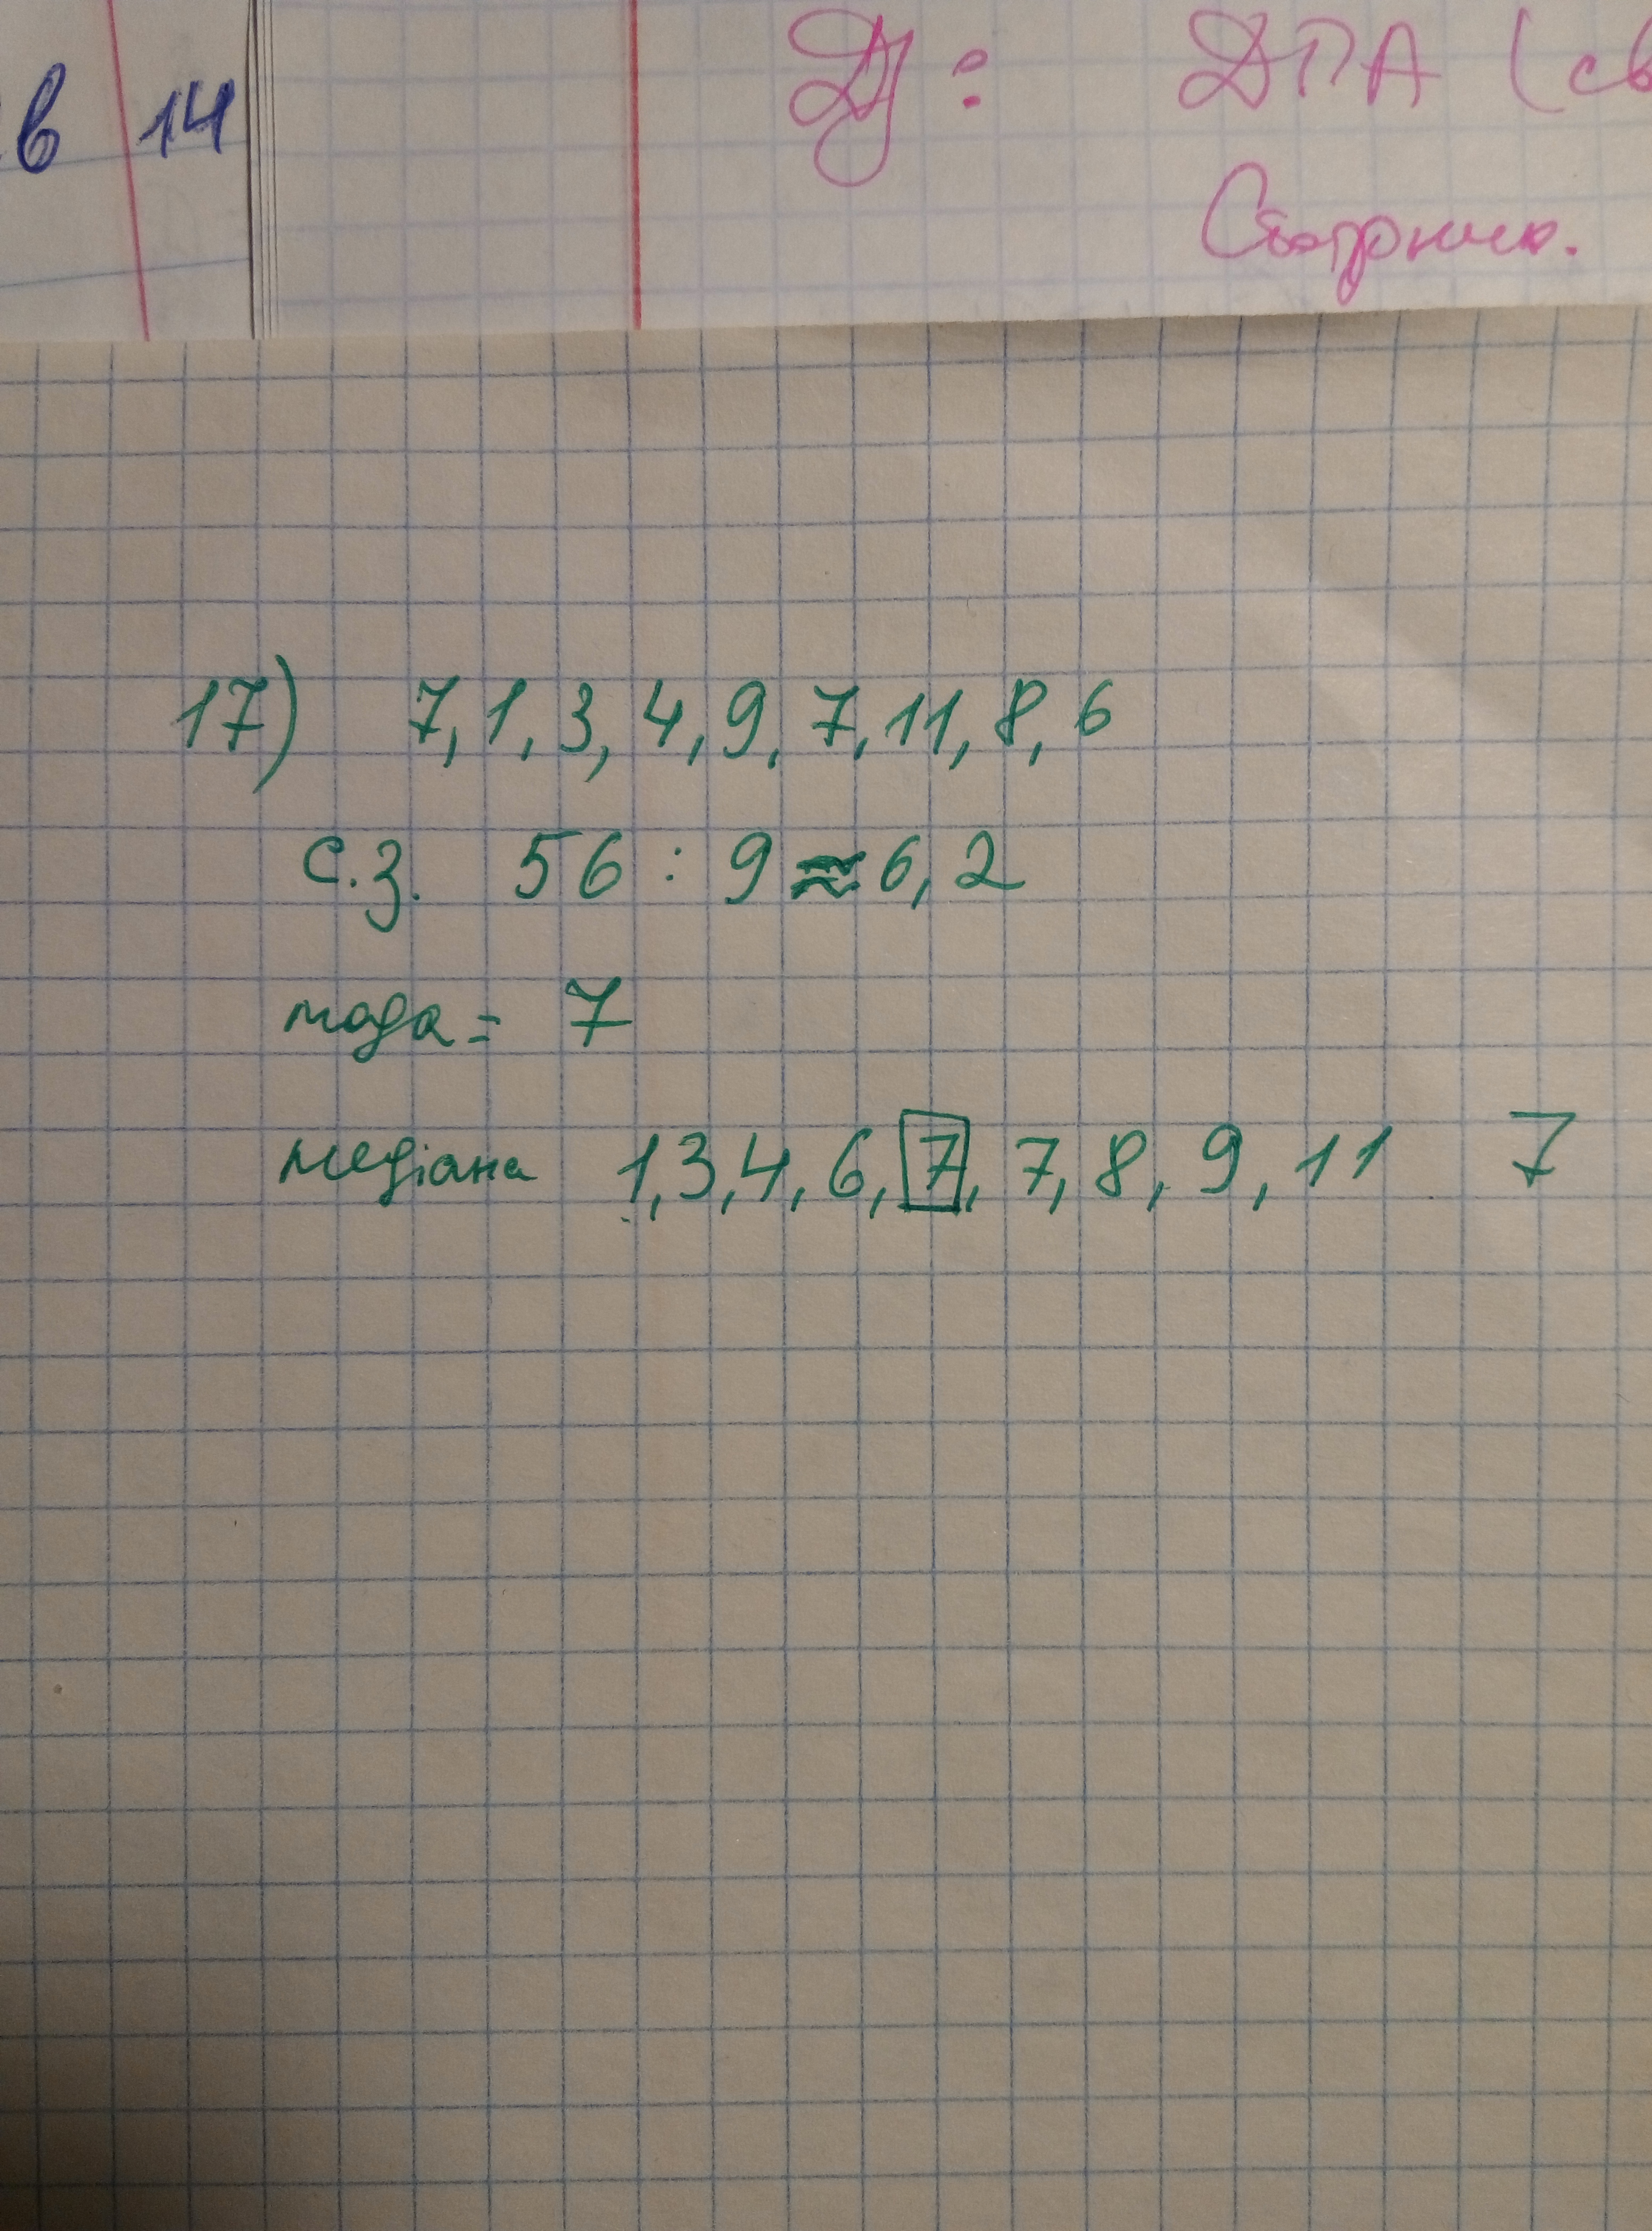 в 14
Д/: ДПА (св
Сборник.
17) 7, 1, 3, 4, 9, 7, 11, 8, 6
с.з. 56 : 9 ≈ 6,2
мода = 7
медіана 1, 3, 4, 6, 7, 7, 8, 9, 11 7